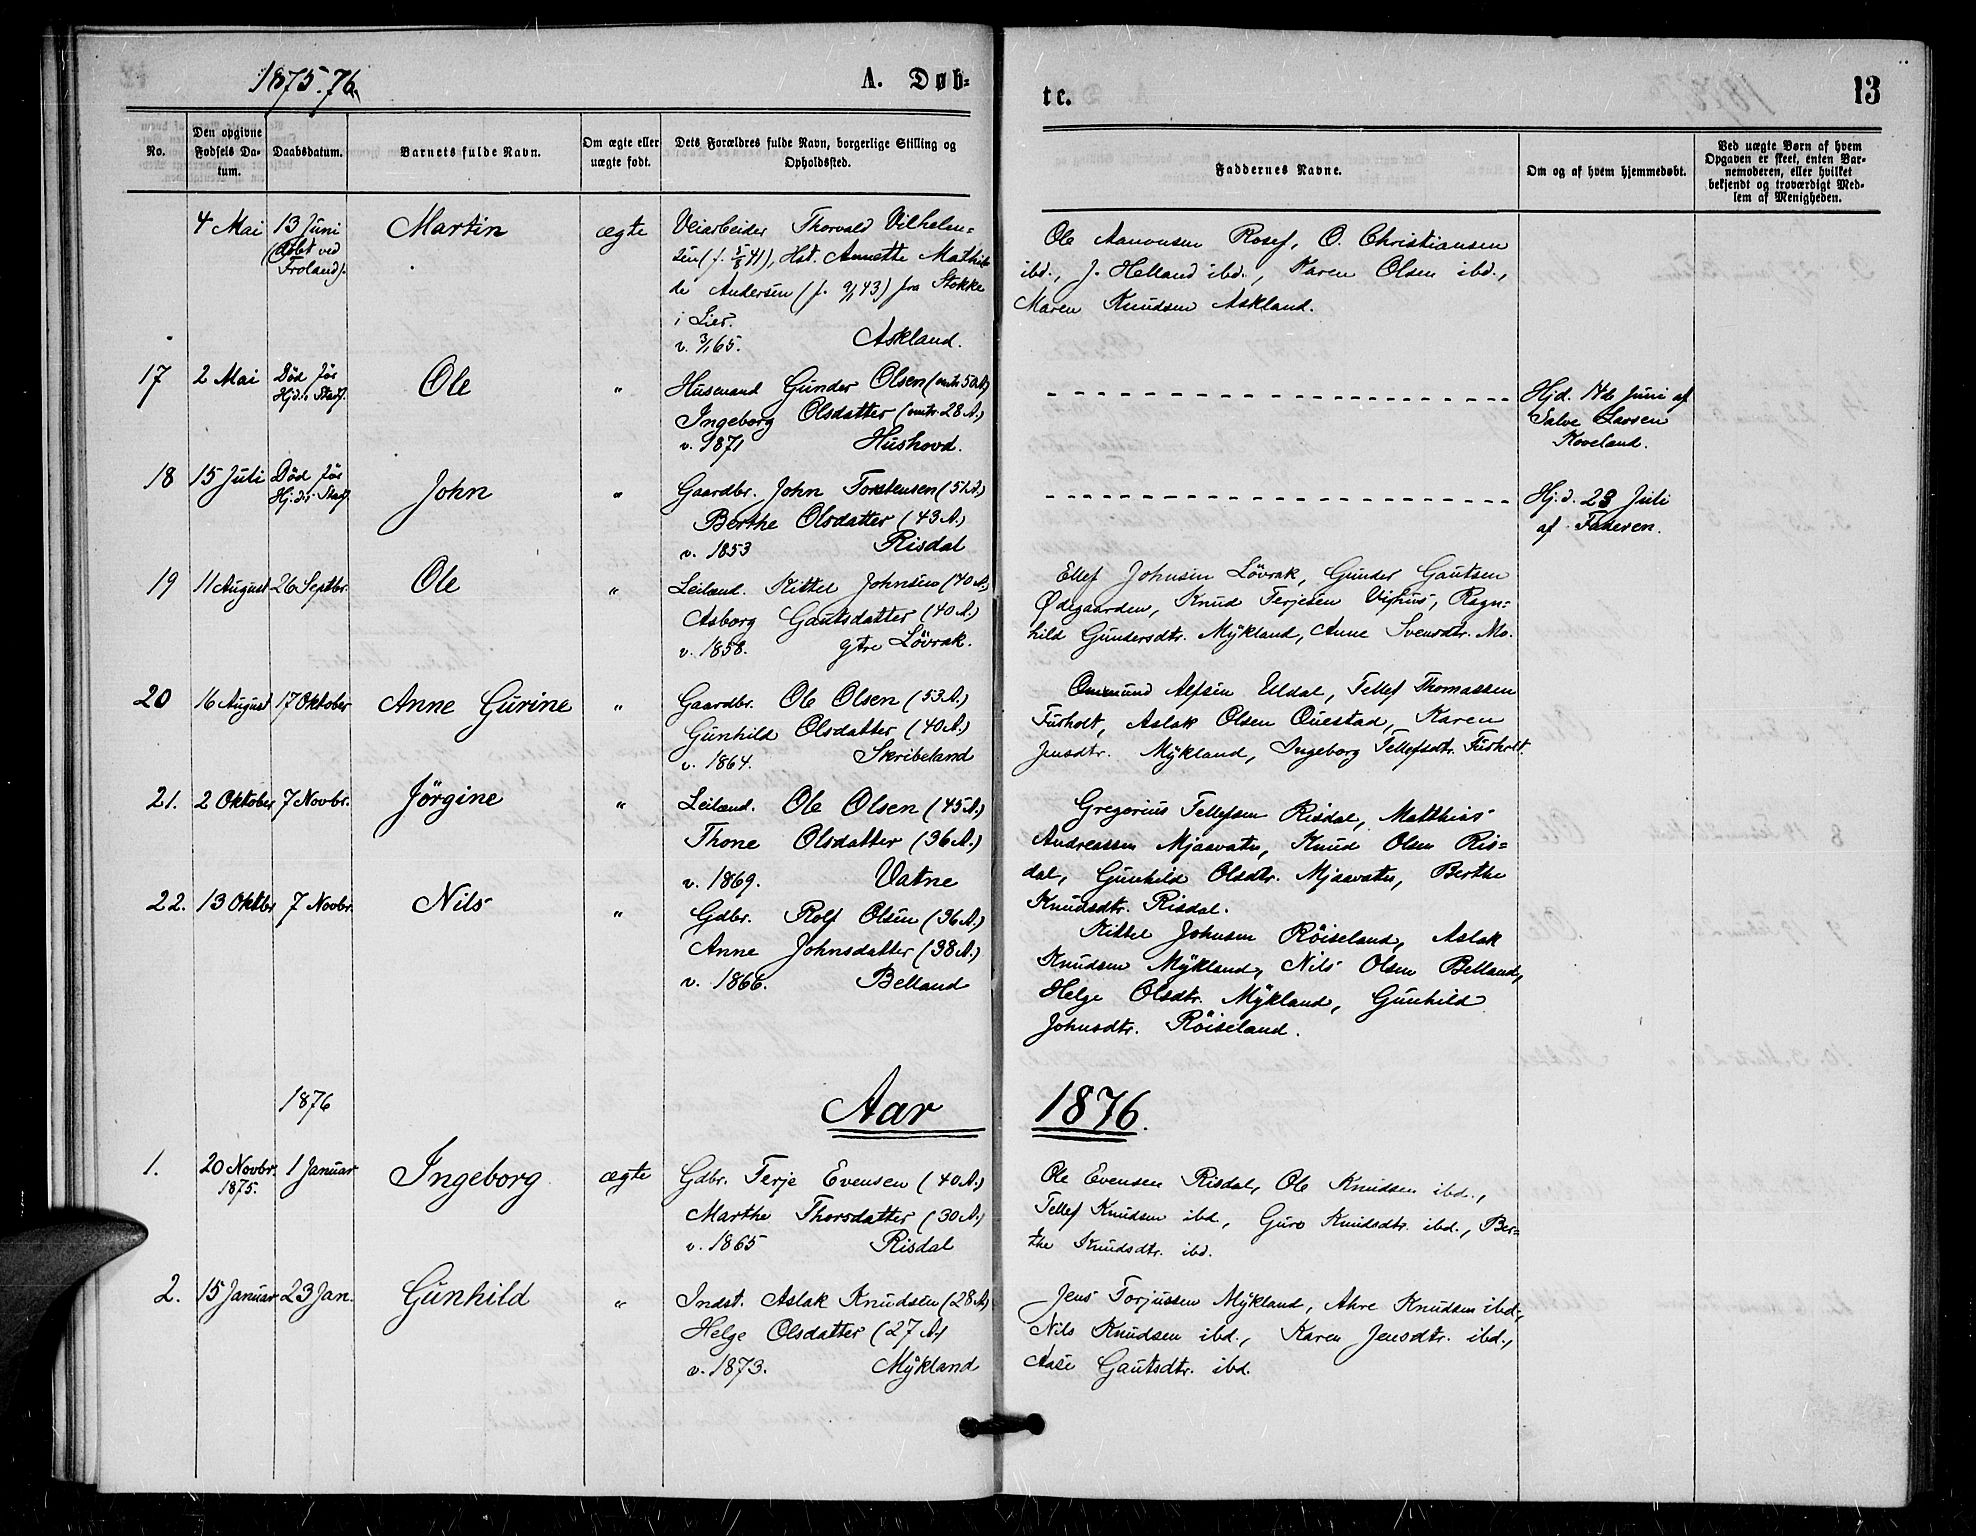 1875.76.
A. Døb-
te.
13
No.
Den opgivne Fødsels Datum.
Daabsdatum.
Barnets fulde Navn.
Om ægte eller uægte født.
Dets Forældres fulde Navn, borgerlige Stilling og Opholdssted.
Faddernes Navne.
Om og af hvem hjemmedøbt.
Ved uægte Børn af hvem Opgaven er skeet, enten Barnemoderen, eller hvilket bekjendt og troværdigt Medlem af Menigheden.
4 Mai 13 Juni Martin ægte Veiarbeider Thorvald Vilhelm-
(døbt ved Froland). sen (f. 5/8 41), Hst. Annette Mathil-
de Andersen (f. 9/1 43) fra Stokke
i Lier.
v. 3/1 65. Askland.
Ole Aanonsen Rosef, O. Christiansen
ibd., J. Helland ibd., Karen Olsen ibd.,
Maren Knudsen Askland.
17 2 Mai Død før Ole " Husmand Gunder Olsen (omtr. 50 A)
Hjd.s Stadf. Ingeborg Olsdatter (omtr. 28 A.)
v. 1871 Hushovd.
Hjd. 14de Juni af
Salve Larsen
Koveland.
18 15 Juli Død før John " Gaardbr. John Torstensen (51 A)
Hj.ds Stadf. Berthe Olsdatter (43 A.)
v. 1853 Risdal
Hj.d. 23 Juli
af Faderen.
19 11 August 26 Septbr. Ole " Leilænd. Kittel Johnsen (40 A.)
Asborg Gautsdatter (40 A.)
v. 1858. ytre Lövrak.
Ellef Johnsen Lövrak, Gunder Gautsen
Ødegaarden, Knud Terjesen Vighus, Ragn-
hild Gundersdtr. Mykland, Anne Svensdtr. Mo.
20 16 August 17 Oktober Anne Gurine " Gaardbr. Ole Olsen (53 A.)
Gunhild Olsdatter (40 A.)
v. 1864. Skribeland
Ommund Alfsen Uldal, Tellef Thomassen
Furholt, Aslak Olsen Ouestad, Karen
Jensdtr. Mykland, Ingeborg Tellefsdtr. Furholt.
21. 2 Oktober 7 Novbr. Jörgine " Leilænd. Ole Olsen (45 A.)
Thone Olsdatter (36 A.)
v. 1869. Vatne
Gregorius Tellefsen Risdal, Matthias
Andreassen Mjaavatn, Knud Olsen Ris-
dal, Gunhild Olsdtr. Mjaavatn, Berthe
Knudsdtr. Risdal.
22. 13 Oktbr 7 Novbr. Nils " Gdbr. Rolf Olsen (36 A.)
Anne Johnsdatter (38 A.)
v. 1866. Belland
Kittel Johnsen Röiseland, Aslak
Knudsen Mykland, Nils Olsen Belland,
Helge Olsdtr. Mykland, Gunhild
Johnsdtr. Röiseland.
1876 Aar 1876.
1. 20 Novbr. 1 Januar Ingeborg ægte Gdbr. Terje Evensen (40 A.)
1875. Marthe Thorsdatter (30 A.)
v. 1865 Risdal
Ole Evensen Risdal, Ole Knudsen ibd.,
Tellef Knudsen ibd., Guro Knudsdtr. ibd., Ber-
the Knudsdtr. ibd.
2. 15 Januar 23 Jan. Gunhild " Indst. Aslak Knudsen (28 A)
Helge Olsdatter (27 A)
v. 1873. Mykland
Jens Torjussen Mykland, Ahre Knudsen ibd.,
Nils Knudsen ibd., Karen Jensdtr. ibd.,
Aase Gautsdtr. ibd.